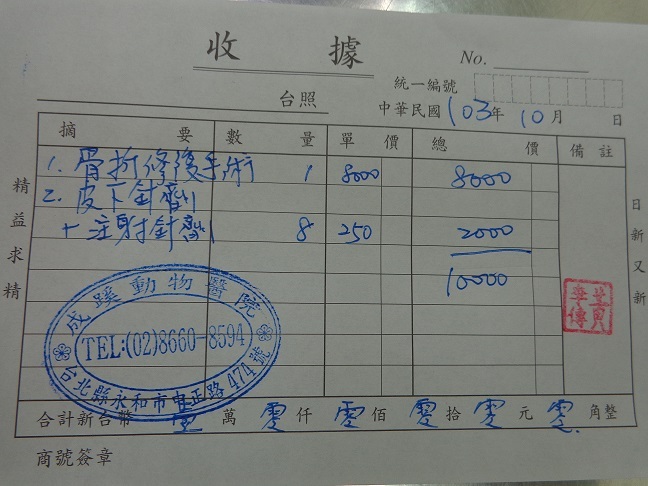 收據
No.
統一編號
台照
中華民國103年10月 日
摘要 數量 單價 總價 備註
1. 骨折修復手術 1 8000 8000
2. 皮下針劑
+注射針劑 8 250 2000
10000
精益求精
日新又新
成蹊動物醫院
TEL:(02)8660-8594
台北縣永和市中正路474號
合計新台幣 壹萬零仟零佰零拾零元零角整
商號簽章